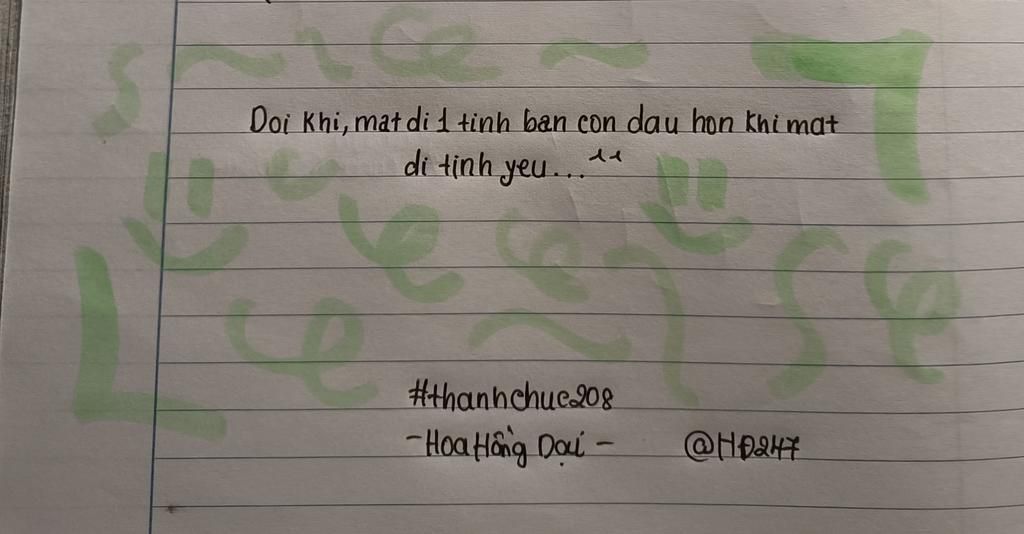 Doi khi, mat di 1 tinh ban con dau hon khi mat
di tinh yeu...
#thanhchuc208
-Hoa Hồng Dại-
@HĐ247